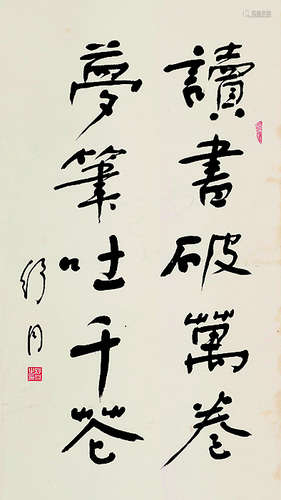 讀書破萬卷
夢筆吐千花
舒同